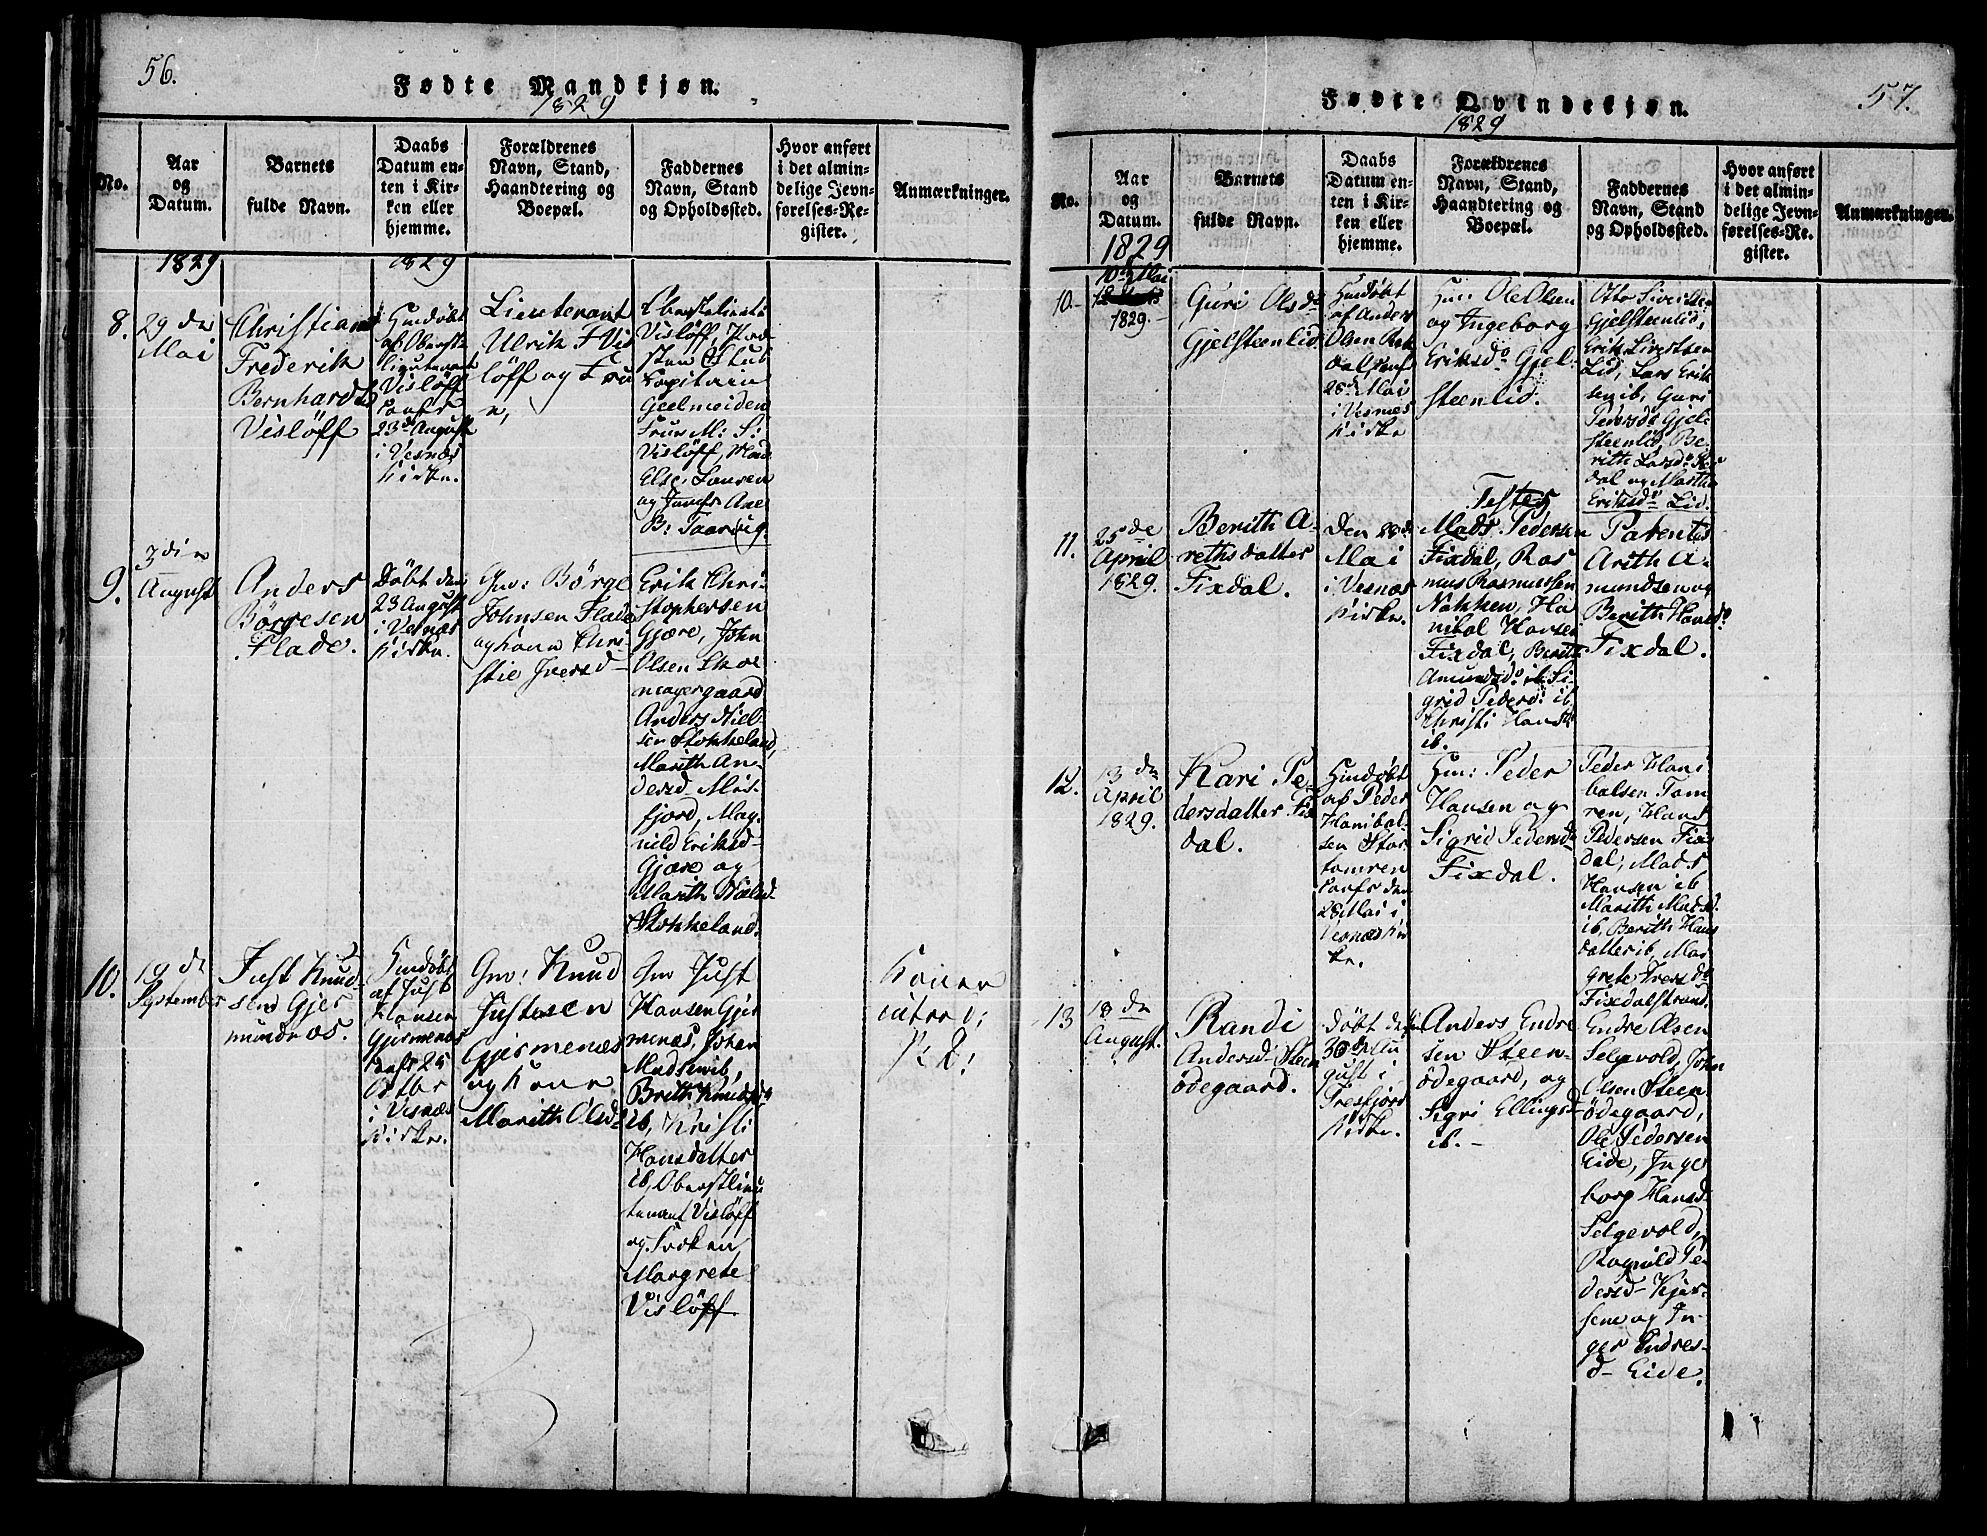 56.
Fødte Mandkjøn.
1829
No.
Aar
og
Datum.
Barnets
fulde Navn.
Daabs
Datum en-
ten i Kir-
ken eller
hjemme.
Forældrenes
Navn, Stand,
Haandtering og
Boepæl.
Faddernes
Navn, Stand
og Opholdssted.
Hvor anført
i det almin-
delige Jevn-
førelses-Re-
gister.
Anmærkninger.
1829
1829
8.
29 de
Mai
Christian
Frederik
Bernhardt
Vislöff
Hiemdöbt
af Oberst
lieutenant
Vislöff
Confr
23de August
i Vesnæs
Kirke.
Lieutenant
Ulrik F Vis
löff og Fru
Vislöff,
Capitain
Geelmeiden
Frue M: S:
Vislöff, Mad
Else Laursen
og Jomfr Ane
B: Taarvig.
9.
3 die
August
Anders
Börgesen
Flade.
Döbt den
23 August
i Vesnæs
Kirke.
Gm: Börge
Johnsen Flade
og kone Chri-
stie Iversd
Erik Chri-
stophersen
Gjære, John
Olsen Skoe
magergaard
Anders Niel-
sen Stokkeland,
Marith An-
dersd Mis-
fjord, Mag-
nild Eriksd
Gjære og
Marith Nielsd
Stokkeland.
10.
19 de
September
Just Knud-
sen Gjer
mundnæs.
Hiemdöbt
af Just
Hansen
Gjermenæs
Confr 25
Octbr
i Vesnæs
Kirke.
Gm: Knud
Justesen
Gjermenæs
og Kone
Marith Olsd
Gm Just
Hansen Gjer
menæs, Johan
Madsen ib,
Brith Knudsd
ib, Kristi
Hansdatter
ib, Oberstlieu
tenant Vislöff
og Froken
Margrete
Vislöff
Konen
introd:
57.
Fødte Qvindekjøn.
1829
No.
Aar
og
Datum.
Barnets
fulde Navn.
Daabs
Datum en-
ten i Kir-
ken eller
hjemme.
Forældrenes
Navn, Stand,
Haandtering og
Boepæl.
Faddernes
Navn, Stand
og Opholdssted.
Hvor anført
i det almin-
delige Jevn-
førelses-Re-
gister.
Anmærkninger.
1829
10.
10de Mai
1829.
Guri Olsd
Gjelsteenlid
Hiemdöbt
af Anders
Olsen
dal, Confr
28de Mai
i Vesnæs
Kirke
Gm: Ole Olsen
og Ingeborg
Eriksd Gjel-
steenlid.
Otto Sivertsen
Gjelsteenlid,
Erik Sivertsen
Lid, Lars Erik
sen ib, Guri
Pedersd Gjel-
steenlid, Be-
rith Larsd
dal og Marthe
Eriksd Lid.
11.
25 de
April
1829.
Berith A-
rethsdatter
Fixdal.
Den 28de
Mai
i Vesnæs
Kirke.
Testes
Mads Pedersen
Fixdal, Ras
mus Rasmussen
Nakken, Ha
nibal Hansen
Fixdal, Berith
Amundsd ib Si-
grid Pedersd ib
Christi Hansd
ib.
Parentes
Arith A-
mundsen og
Berith Hansd
Fixdal.
12.
13 de
April
1829.
Kari Pe-
dersdatter Fix
dal.
Hiemdöbt
af Peder
Hanibal-
sen Stor
tomren
Confr den
28 Mai i
Vesnæs Kir
ke.
Gm: Peder
Hansen og
Sigrid Pedersd
Fixdal.
Peder Hani
balsen Tom
ren, Hans
Pedersen Fix
dal, Mads
Hansen ib
Marith Madsd
ib, Berith Hans
datter ib, Mar
grete Iversd
Fixdalstrand.
13
18 de
August.
Randi
Andersd Steen
ödegaard.
Döbt den
30 Au
gust i
Tresfjord
Kirke.
Anders Endre
sen Steen-
ödegaard, og
Sigri Ellingsd
ib.
Endre Olsen
Selgevold, John
Olsen Steen
ödegaard,
Ole Pedersen
Eide, Inge
borg Hansd
Selgevold,
Ragnild Pe
dersd Kjer-
sene og In-
ger Endres-
d Eide.